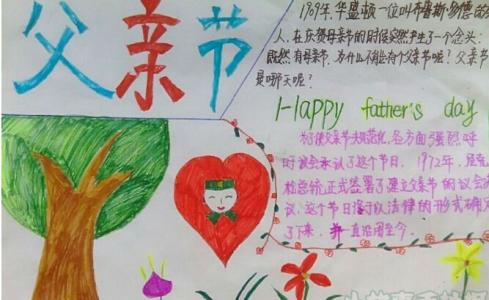 父亲节
1909年,华盛顿一位叫布鲁斯·多德的
人,在庆贺母亲节的时候突然产生了一个念头:
既然有母亲节,为什么不能有个父亲节呢?父亲节
是哪天呢?
Happy father's day
为了使父亲节规范化,各方面强烈呼
吁议会承认了这个节日。1972年,
松总统正式签署了建立父亲节的议会
议,这个节日终于以法律的形式确定
了下来,并一直沿用至今。